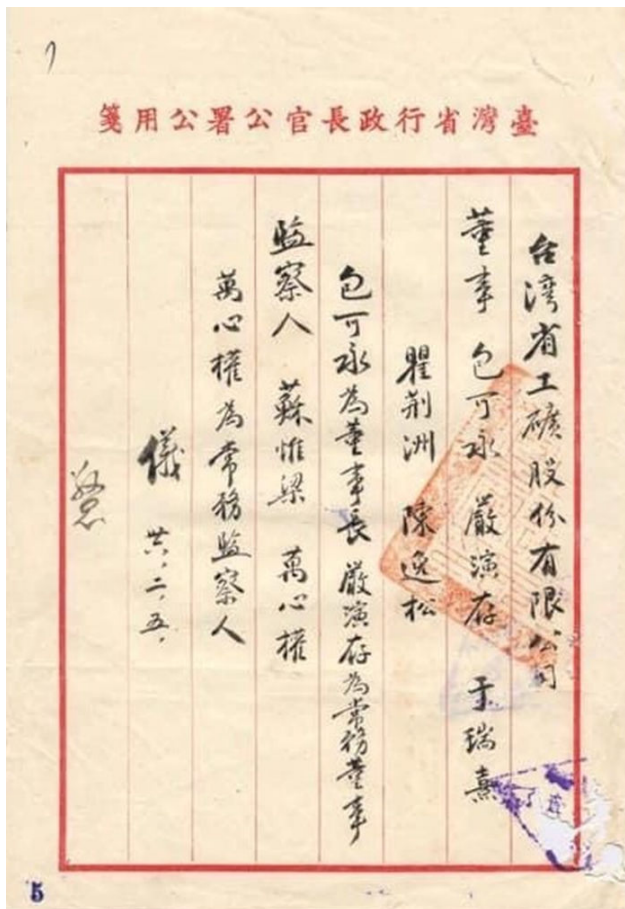 臺灣省行政長官公署公用箋
台湾省工礦股份有限公司
董事 包可永 嚴演存 于瑞熹
瞿荆洲 陳逸松
包可永為董事長 嚴演存為常務董事
監察人 蘇惟梁 萬心權
萬心權為常務監察人
儀 卅六.二.五.
5